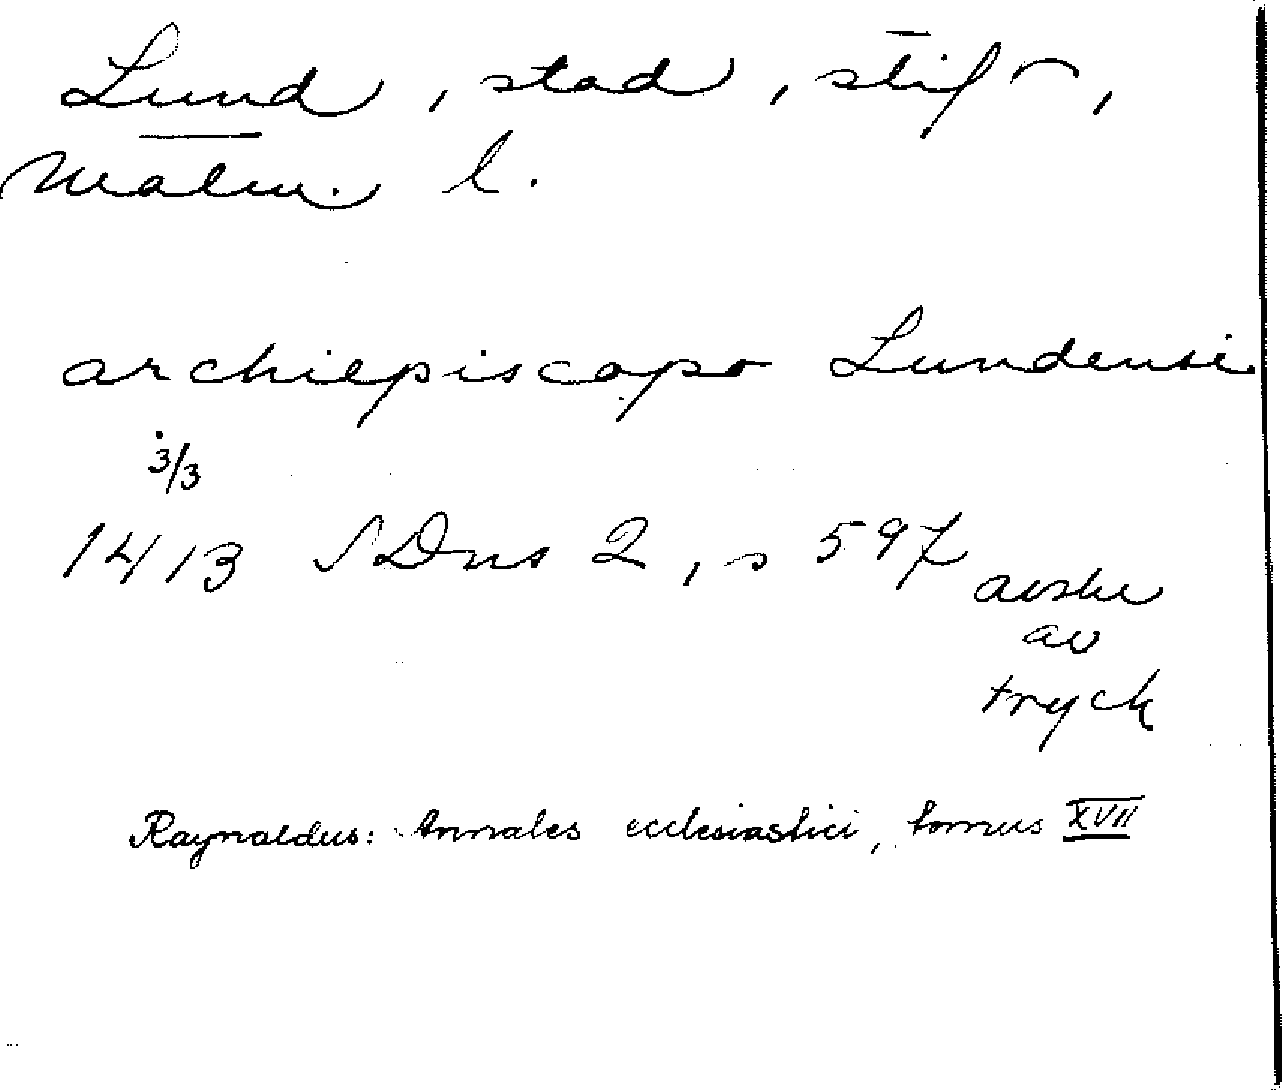 Lund, stad, stift,
Malm. l.
archiepiscopo Lundensi
3/3
1413 SDns 2, s 597
avskr
av
tryck
Raynaldus: Annales ecclesiastici, tomus XVII